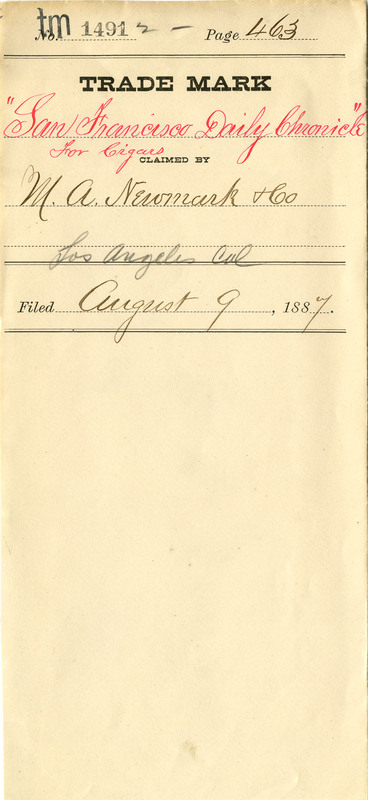 tm No. 1491 2 — Page 463
TRADE MARK
"San Francisco Daily Chronicle"
For Cigars
CLAIMED BY
M. A. Newmark & Co
Los Angeles Cal
Filed August 9, 1887.